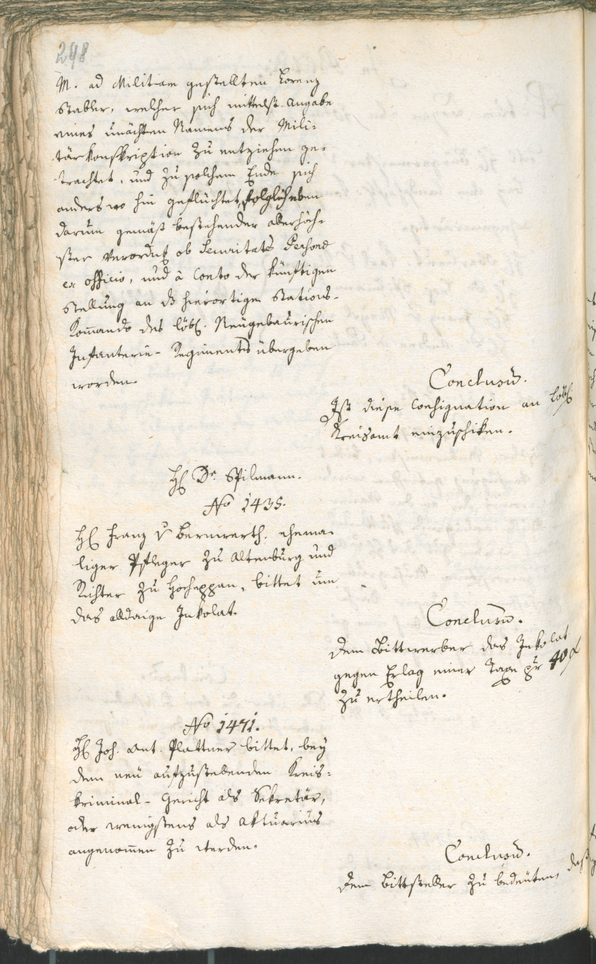 298
M. ad Militiam gestellten Lorenz
Stabler, welcher sich mittelst Angabe
eines unächten Namens der Mili-
tärkonskription zu entziehen ge-
trachtet, und zu solchem Ende sich
anders wo hin geflüchtet, folglich eben
darum gemäß bestehender allerhöch-
ster Verordnung ob Securitatem Personae
ex officio, und à Conto der künftigen
Stellung an das hierortige Stations-
Kommando des löbl. Neugebaurischen
Infanterie-Regiments übergeben
worden.
Conclusum.
Ist diese Consignation an löbl.
Kreisamt einzuschiken.
H. Dr. Spilmann.
No 1435.
H. Franz v. Bernwerth, ehema-
liger Pfleger zu Altenburg und
Richter zu Hocheppan, bittet um
das alldaige Inkolat.
Conclusum.
Dem Bittwerber das Inkolat
gegen Erlag einer Taxe pr 40 f
zu ertheilen.
No 1471.
H. Joh. Ant. Plattner bittet, bey
dem neu aufzustellenden Kreis-
kriminal-Gericht als Sekretär,
oder wenigstens als Aktuarius
angenommen zu werden.
Conclusum.
Dem Bittsteller zu bedeuten, daß